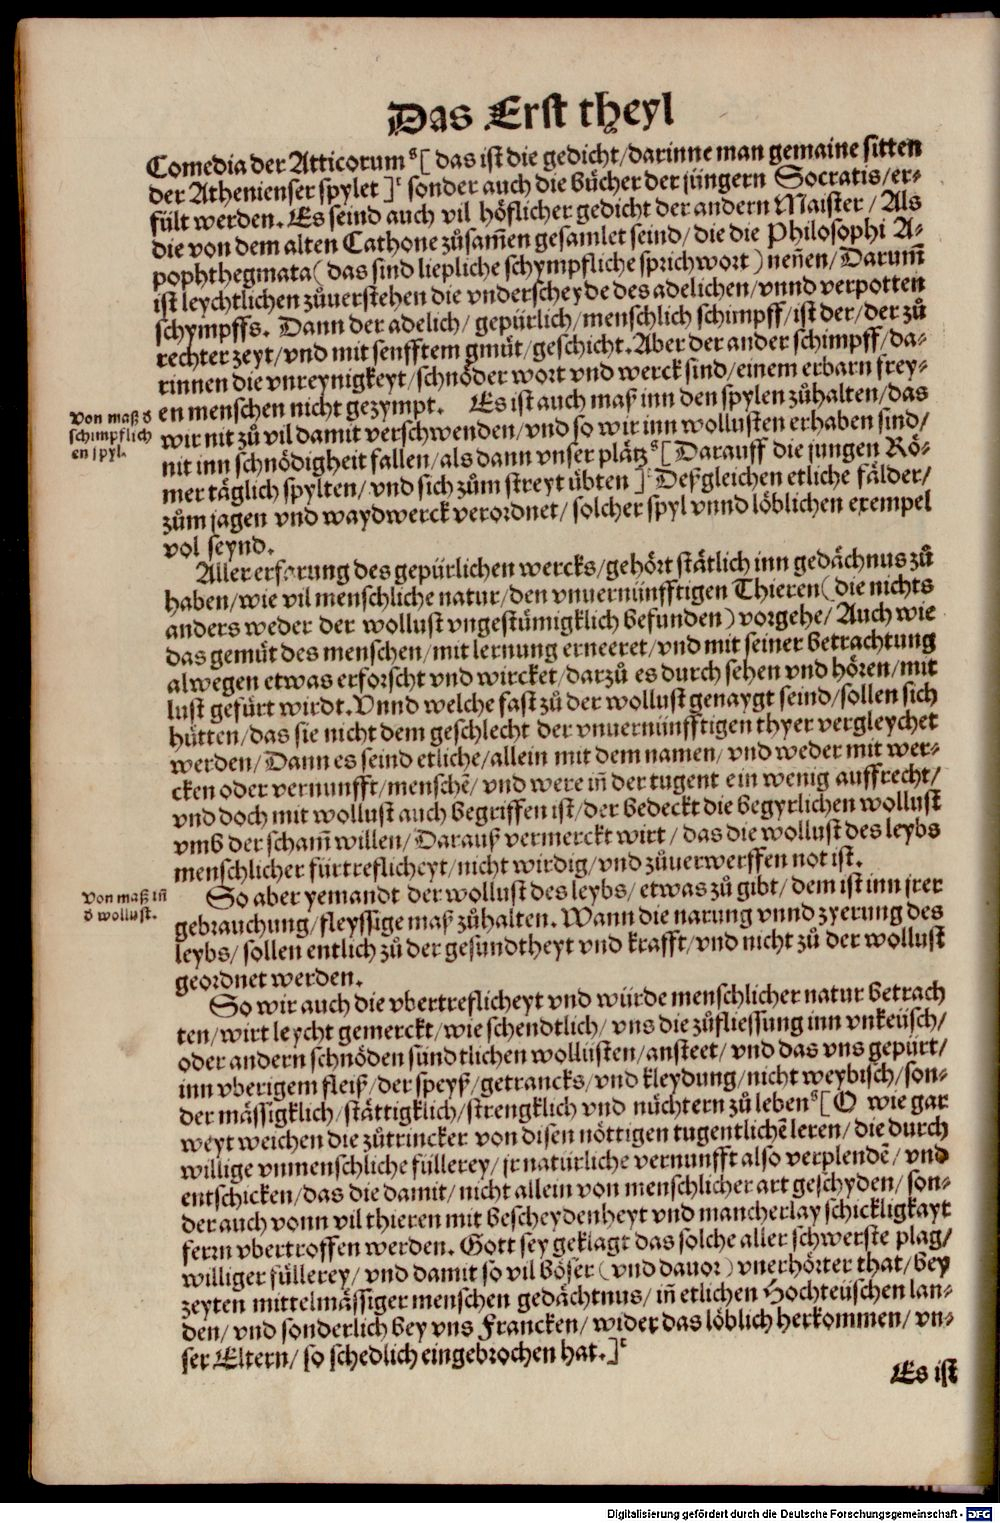 Das Erst theyl
Comedia der Atticorum ˢ[ das ist die gedicht/darinne man gemaine sitten
der Athenienser spylet ]ᶜ sonder auch die bücher der jüngern Socratis/er-
fült werden. Es seind auch vil höflicher gedicht der andern Maister / Als
die von dem alten Cathone zůsam̄en gesamlet seind/ die die Philosophi A-
pophthegmata ( das sind liepliche schympfliche sprichwort ) nen̄en/ Darum̄
ist leychtlichen zůuerstehen die vnderscheyde des adelichen/vnnd verpotten
schympffs. Dann der adelich/ gepürlich/menschlich schimpff/ist der/der zů
rechter zeyt/vnd mit senfftem gmüt/geschicht. Aber der ander schimpff/da-
rinnen die vnreynigkeyt/schnöder wort vnd werck sind/einem erbarn frey-
en menschen nicht gezympt. Es ist auch maß inn den spylen zůhalten/das
Von maß d
schimpflich
en spyl.
wir nit zů vil damit verschwenden/vnd so wir inn wollusten erhaben sind/
nit inn schnödigheit fallen/als dann vnser plätz ˢ[ Darauff die jungen Rö-
mer täglich spylten/ vnd sich zům streyt übten ]ᶜ Deßgleichen etliche fälder/
zům jagen vnd waydwerck verordnet/ solcher spyl vnnd löblichen exempel
vol seynd.
Aller erfarung des gepürlichen wercks/gehört stätlich inn gedächnus zů
haben/wie vil menschliche natur/den vnuernünfftigen Thieren ( die nichts
anders weder der wollust vngestümigklich befunden ) vorgehe/ Auch wie
das gemüt des menschen/mit lernung erneeret/vnd mit seiner betrachtung
alwegen etwas erforscht vnd wircket/darzů es durch sehen vnd hören/mit
lust gefürt wirdt. Vnnd welche fast zů der wollust genaygt seind/sollen sich
hütten/das sie nicht dem geschlecht der vnuernünfftigen thyer vergleychet
werden/ Dann es seind etliche/allein mit dem namen/ vnd weder mit wer-
cken oder vernunfft/menschē/ vnd were in̄ der tugent ein wenig auffrecht/
vnd doch mit wollust auch begriffen ist/der bedeckt die begyrlichen wollust
vmb der scham̄ willen/ Darauß vermerckt wirt / das die wollust des leybs
menschlicher fürtreflicheyt/nicht wirdig/vnd zůuerwerffen not ist.
Von maß in̄
d wollust.
So aber yemandt der wollust des leybs/ etwas zů gibt/ dem ist inn jrer
gebrauchung/fleyssige maß zůhalten. Wann die narung vnnd zyerung des
leybs/ sollen entlich zů der gesundtheyt vnd krafft/vnd nicht zů der wollust
geordnet werden.
So wir auch die vbertreflicheyt vnd würde menschlicher natur betrach
ten/wirt leycht gemerckt/wie schendtlich/ vns die zůfliessung inn vnkeüsch/
oder andern schnöden sündtlichen wollüsten/ansteet/ vnd das vns gepürt/
inn vberigem fleiß/der speyß/getrancks/vnd kleydung/nicht weybisch/son-
der mässigklich/stättigklich/strengklich vnd nüchtern zů leben ˢ[ O wie gar
weyt weichen die zůtrincker von disen nöttigen tugentlichē leren/ die durch
willige vnmenschliche füllerey/ jr natürliche vernunfft also verplendē/ vnd
entschicken/das die damit/ nicht allein von menschlicher art geschyden/ son-
der auch vonn vil thieren mit bescheydenheyt vnd mancherlay schickligkayt
ferrn vbertroffen werden. Gott sey geklagt das solche aller schwerste plag/
williger füllerey/ vnd damit so vil böser ( vnd dauor ) vnerhörter that/ bey
zeyten mittelmässiger menschen gedächtnus/ in̄ etlichen Hochteüschen lan-
den/ vnd sonderlich bey vns Francken/ wider das löblich herkommen/ vn-
ser Eltern/ so schedlich eingebrochen hat. ]ᶜ
Es ist
Digitalisierung gefördert durch die Deutsche Forschungsgemeinschaft - DFG